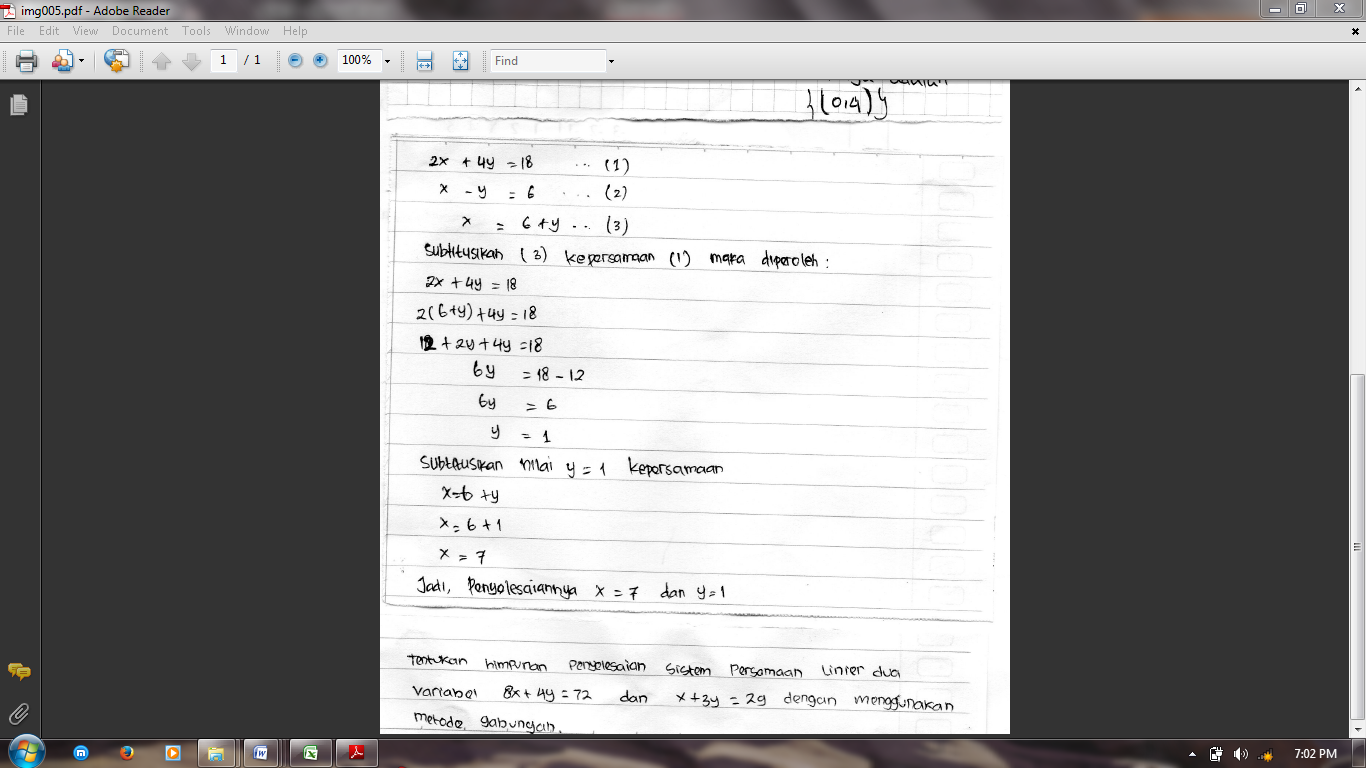 img005.pdf - Adobe Reader
File Edit View Document Tools Window Help
1 / 1 100% Find
{(0,4)}
2x + 4y = 18 ... (1)
x - y = 6 ... (2)
x = 6 + y ... (3)
Subtitusikan (3) kepersamaan (1) maka diperoleh :
2x + 4y = 18
2(6+y) + 4y = 18
12 + 2y + 4y = 18
6y = 18 - 12
6y = 6
y = 1
Subtitusikan nilai y = 1 kepersamaan
x = 6 + y
x = 6 + 1
x = 7
Jadi, Penyelesaiannya x = 7 dan y = 1
Tentukan himpunan penyelesaian sistem persamaan linier dua
variabel 8x + 4y = 72 dan x + 3y = 29 dengan menggunakan
metode gabungan.
7:02 PM